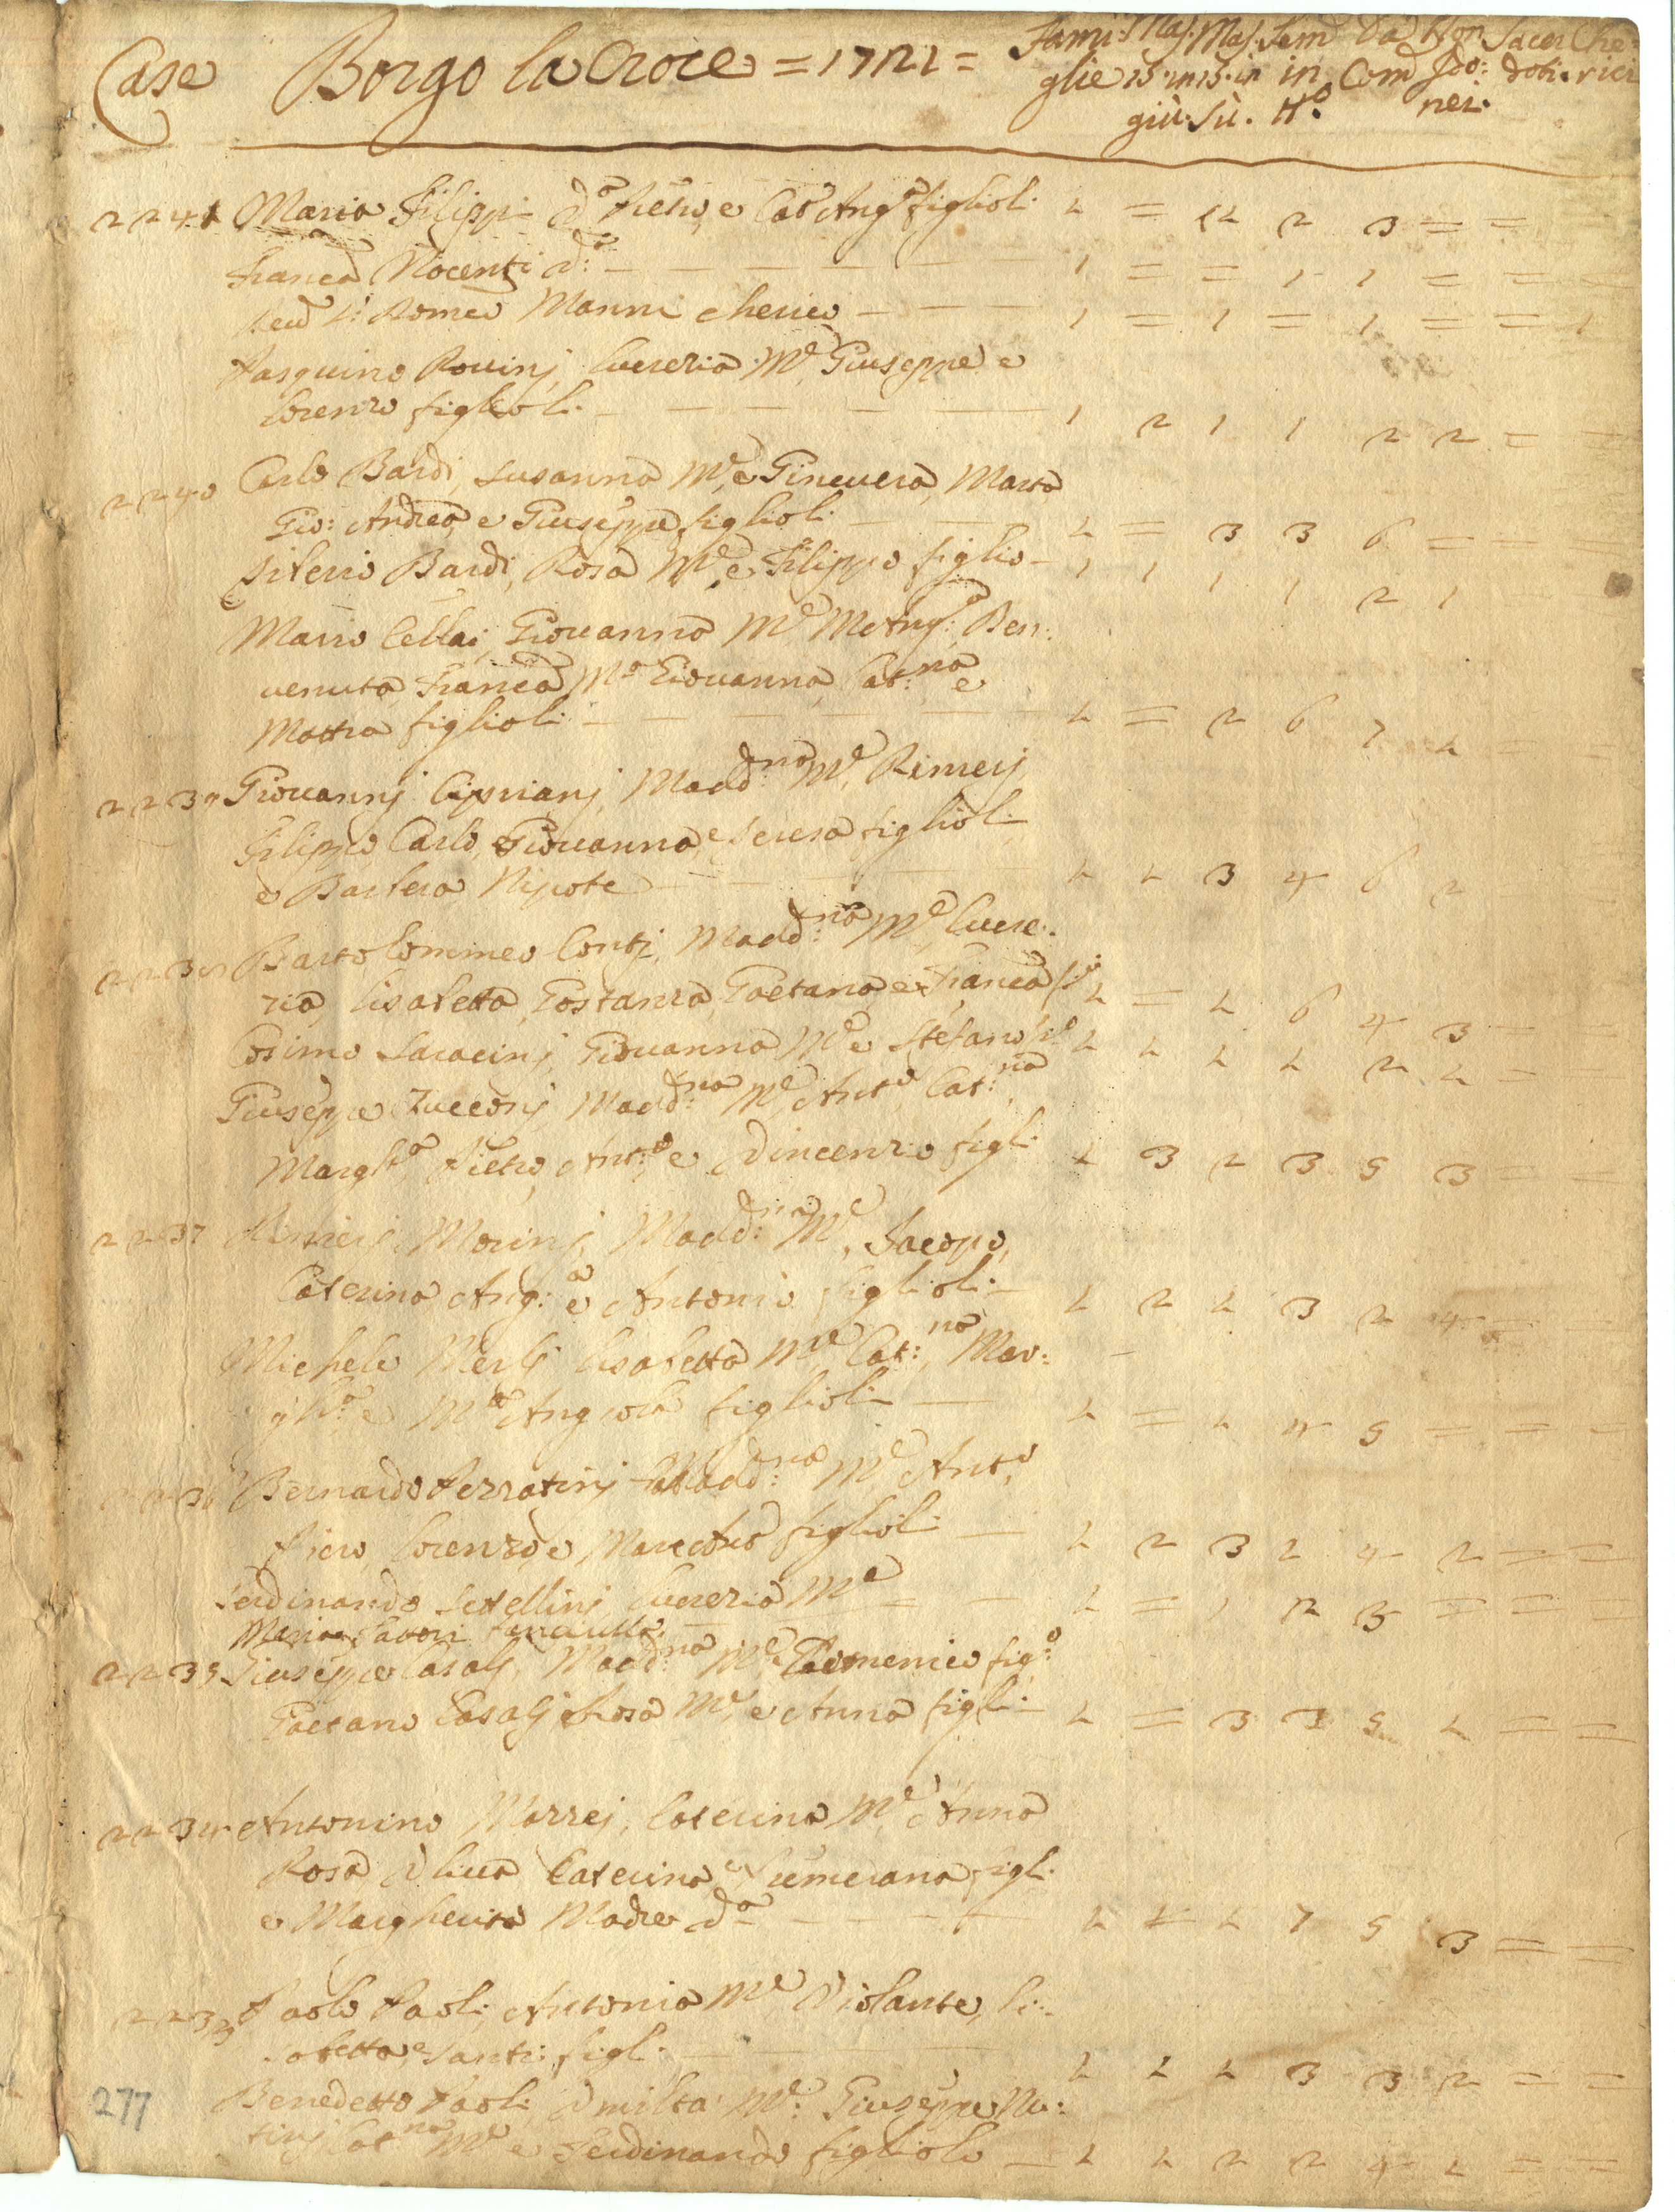 Case Borgo la Croce = 1721 = Fami: Mas. Mas. Fem Da Non Sacer Che=
glie 15 in 15 in in Com Ido: doti. rici
giù. Sù. Nº nei.
2241 Maria Filippi dª Pietro, e Catª Angª figlioli. 1 = 1 2 3 = =
Francª Nocenti dª: — — — — — 1 = = 1 1 = =
Romeo Manni cherico — — 1 = 1 = 1 = = 1
Pasquino Rovinj, Lucrezia Mᵉ, Giuseppe e
Lorenzo figlioli. — — — — 1 2 1 1 2 2 = =
2240 Carlo Bardi, Susanna Mᵉ, e Ginevera, Marta,
Gio: Andrea, e Giuseppe figlioli — 1 = 3 3 6 = = =
Silverio Bardi, Rosa Mᵉ, e Filippo figlio — 1 1 1 1 2 1
Mario Cellai, Giovanna Mᵉ Mª Angª: Ben:
venuta, Francª, Mª Giovanna, Cat:ⁿᵃ e
Mattia figlioli: — — — — 1 = 2 6 7 1 = =
2239 Giovannj Ciprianj, Madd:ⁿᵃ Mᵉ, Rinierj
Filippo Carlo, Giovanna, e Teresa figlioli
e Barbera Nipote — — — 1 1 3 4 6 2 = =
2238 Bartolommeo Contj, Madd:ⁿᵃ Mᵉ, Lucre:
zia, Lisabetta, Gostanza, Gaetana, e Francª fⁱ: 1 = 1 6 4 3 = =
Cosimo Saracinj, Giovanna Mᵉ e Stefano 1 1 1 1 2 1 = =
Giuseppe Zucconj, Madd:ⁿᵃ Mᵉ, Antª Cat:ⁿᵃ,
Marghª, Pietro, Ant:º e Vincenzio figli. 1 3 2 3 5 3 = =
2237 Rinierj Morinj, Madd:ⁿᵃ Mᵉ, Jacopo,
Caterina Ang:ª e Antonio figlioli. — 1 2 1 3 2 4 = =
Michele Merlj Lisabetta Mᵉ, Cat:ⁿᵃ, Mar:
ghª: e Mª Angiola figlioli — 1 = 1 4 5 = = =
2236 Bernardo Perratinj Madd:ⁿᵃ Mᵉ, Antº,
Piero, Lorenzo, e figlioli — 1 2 3 2 4 2 = =
Ferdinando Lucrezia Mᵉ = — 1 = 1 2 3 = = =
Maria fanciulla. —
2235 Giuseppe Casalj, Madd:ⁿᵃ Mᵉ, Domenico fig:º
Gaetano Casalj Rosa Mᵉ, e Anna figli — 1 = 3 3 5 1 = =
2234 Antonino Marzej, Caterina Mᵉ, Anna
Rosa Oliva Caterina, e Fumerana figli.
e Margherita Madre dª — — — — 1 1 1 7 5 3 = =
2233 Paolo Paoli, Antonia Mᵉ Violante, Li:
sabetta, e Santi figl. — 1 1 1 3 3 2 = =
Benedetto Paoli Mᵉ: Giuseppe Nu:
tinj Catⁿᵃ Mᵉ e Ferdinando figliolo — 1 1 2 2 4 1 = =
277